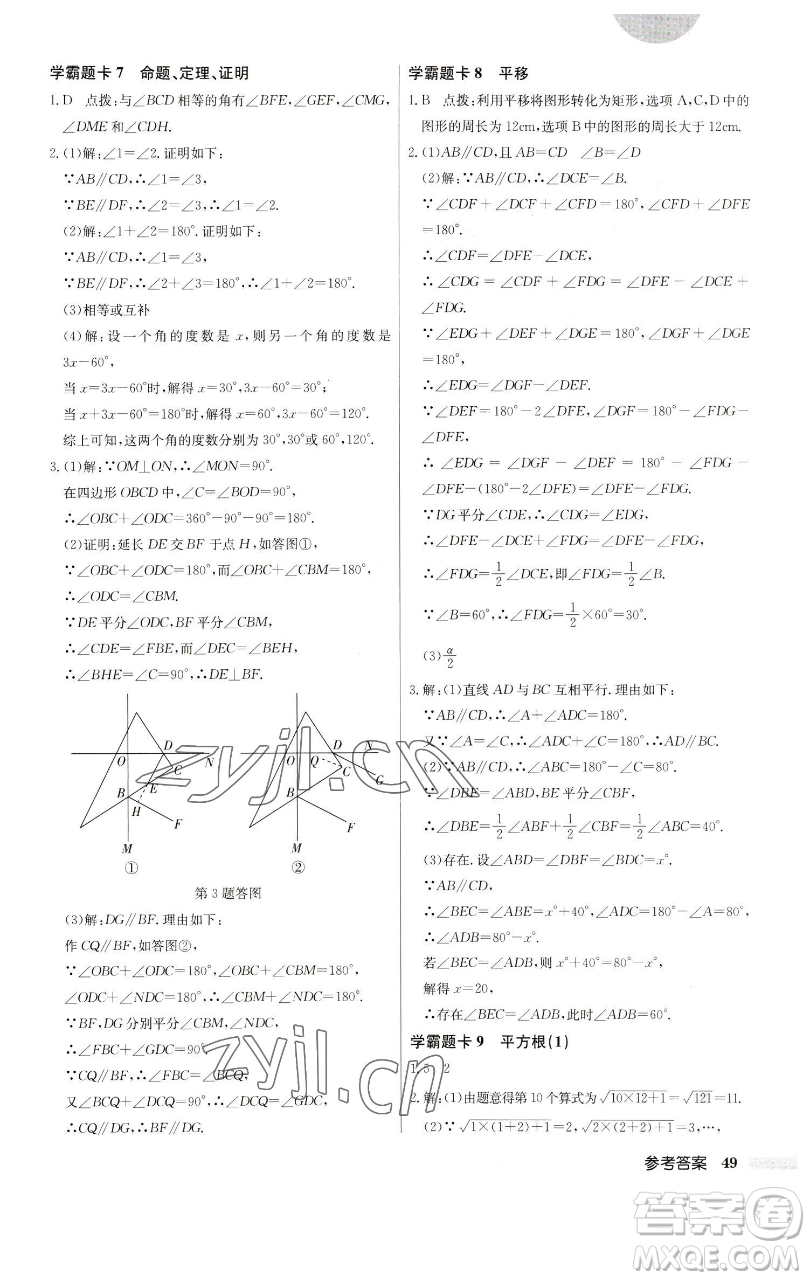 学霸题卡7 命题、定理、证明
1.D 点拨:与∠BCD相等的角有∠BFE,∠GEF,∠CMG,
∠DME和∠CDH.
2.(1)解:∠1=∠2.证明如下:
∵AB∥CD,∴∠1=∠3,
∵BE∥DF,∴∠2=∠3,∴∠1=∠2.
(2)解:∠1+∠2=180°.证明如下:
∵AB∥CD,∴∠1=∠3,
∵BE∥DF,∴∠2+∠3=180°,∴∠1+∠2=180°.
(3)相等或互补
(4)解:设一个角的度数是x,则另一个角的度数是
3x-60°,
当x=3x-60°时,解得x=30°,3x-60°=30°;
当x+3x-60°=180°时,解得x=60°,3x-60°=120°.
综上可知,这两个角的度数分别为30°,30°或60°,120°.
3.(1)解:∵OM⊥ON,∴∠MON=90°.
在四边形OBCD中,∠C=∠BOD=90°,
∴∠OBC+∠ODC=360°-90°-90°=180°.
(2)证明:延长DE交BF于点H,如答图①,
∵∠OBC+∠ODC=180°,而∠OBC+∠CBM=180°,
∴∠ODC=∠CBM.
∵DE平分∠ODC,BF平分∠CBM,
∴∠CDE=∠FBE,而∠DEC=∠BEH,
∴∠BHE=∠C=90°,∴DE⊥BF.
O D N C E B H F M
①
O Q D N C G B F M
②
第3题答图
(3)解:DG∥BF.理由如下:
作CQ∥BF,如答图②,
∵∠OBC+∠ODC=180°,∠OBC+∠CBM=180°,
∠ODC+∠NDC=180°,∴∠CBM+∠NDC=180°.
∵BF,DG分别平分∠CBM,∠NDC,
∴∠GDC+∠FBC=90°.∵CQ∥BF,∴∠FBC=∠BCQ,
又∠BCQ+∠DCQ=90°,∴∠GDC=∠DCQ,
∴CQ∥DG,∴BF∥DG.
学霸题卡8 平移
1.B 点拨:利用平移将图形转化为矩形,选项A,C,D中的
图形的周长为12cm,选项B中的图形的周长大于12cm.
2.(1)AB∥CD,且AB=CD ∠B=∠D
(2)解:∵AB∥CD,∴∠DCE=∠B.
∵∠CDF+∠DCF+∠DFC=180°,∠DFC+∠DFE
=180°.
∴∠CDF=∠DFE-∠DCE,
∴∠CDG=∠CDF+∠FDG=∠DFE-∠DCE+
∠FDG.
∵∠EDG+∠DEF+∠DGE=180°,∠DGF+∠DGE
=180°,
∴∠EDG=∠DGF-∠DEF.
∵∠DEF=180°-2∠DFE,∠DGF=180°-∠FDG-
∠DFE,
∴∠EDG=∠DGF-∠DEF=180°-∠FDG-
∠DFE-(180°-2∠DFE)=∠DFE-∠FDG.
∵DG平分∠CDE,∴∠CDG=∠EDG,
∴∠DFE-∠DCE+∠FDG=∠DFE-∠FDG,
∴∠FDG=1/2∠DCE,即∠FDG=1/2∠B.
∵∠B=60°,∴∠FDG=1/2×60°=30°.
(3)α/2
3.解:(1)直线AD与BC互相平行.理由如下:
∵AB∥CD,∴∠A+∠ADC=180°.
又∵∠A=∠C,∴∠ADC+∠C=180°,∴AD∥BC.
(2)∵AB∥CD,∴∠ABC=180°-∠C=80°.
∵∠DBE=∠ABD,BE平分∠CBF,
∴∠DBE=1/2∠ABF+1/2∠CBF=1/2∠ABC=40°.
(3)存在.设∠ABD=∠DBF=∠BDC=x°.
∵AB∥CD,
∴∠BEC=∠ABE=x°+40°,∠ADC=180°-∠A=80°,
∴∠ADB=80°-x°.
若∠BEC=∠ADB,则x°+40°=80°-x°,
解得x=20,
∴存在∠BEC=∠ADB,此时∠ADB=60°.
学霸题卡9 平方根(1)
1.5 2
2.解:(1)由题意得第10个算式为√(10×12+1)=√121=11.
(2)∵√(1×(1+2)+1)=2,√(2×(2+2)+1)=3,…,
参考答案 49
zyjl.cn
zyjl.cn
答案圈
MXQE.COM